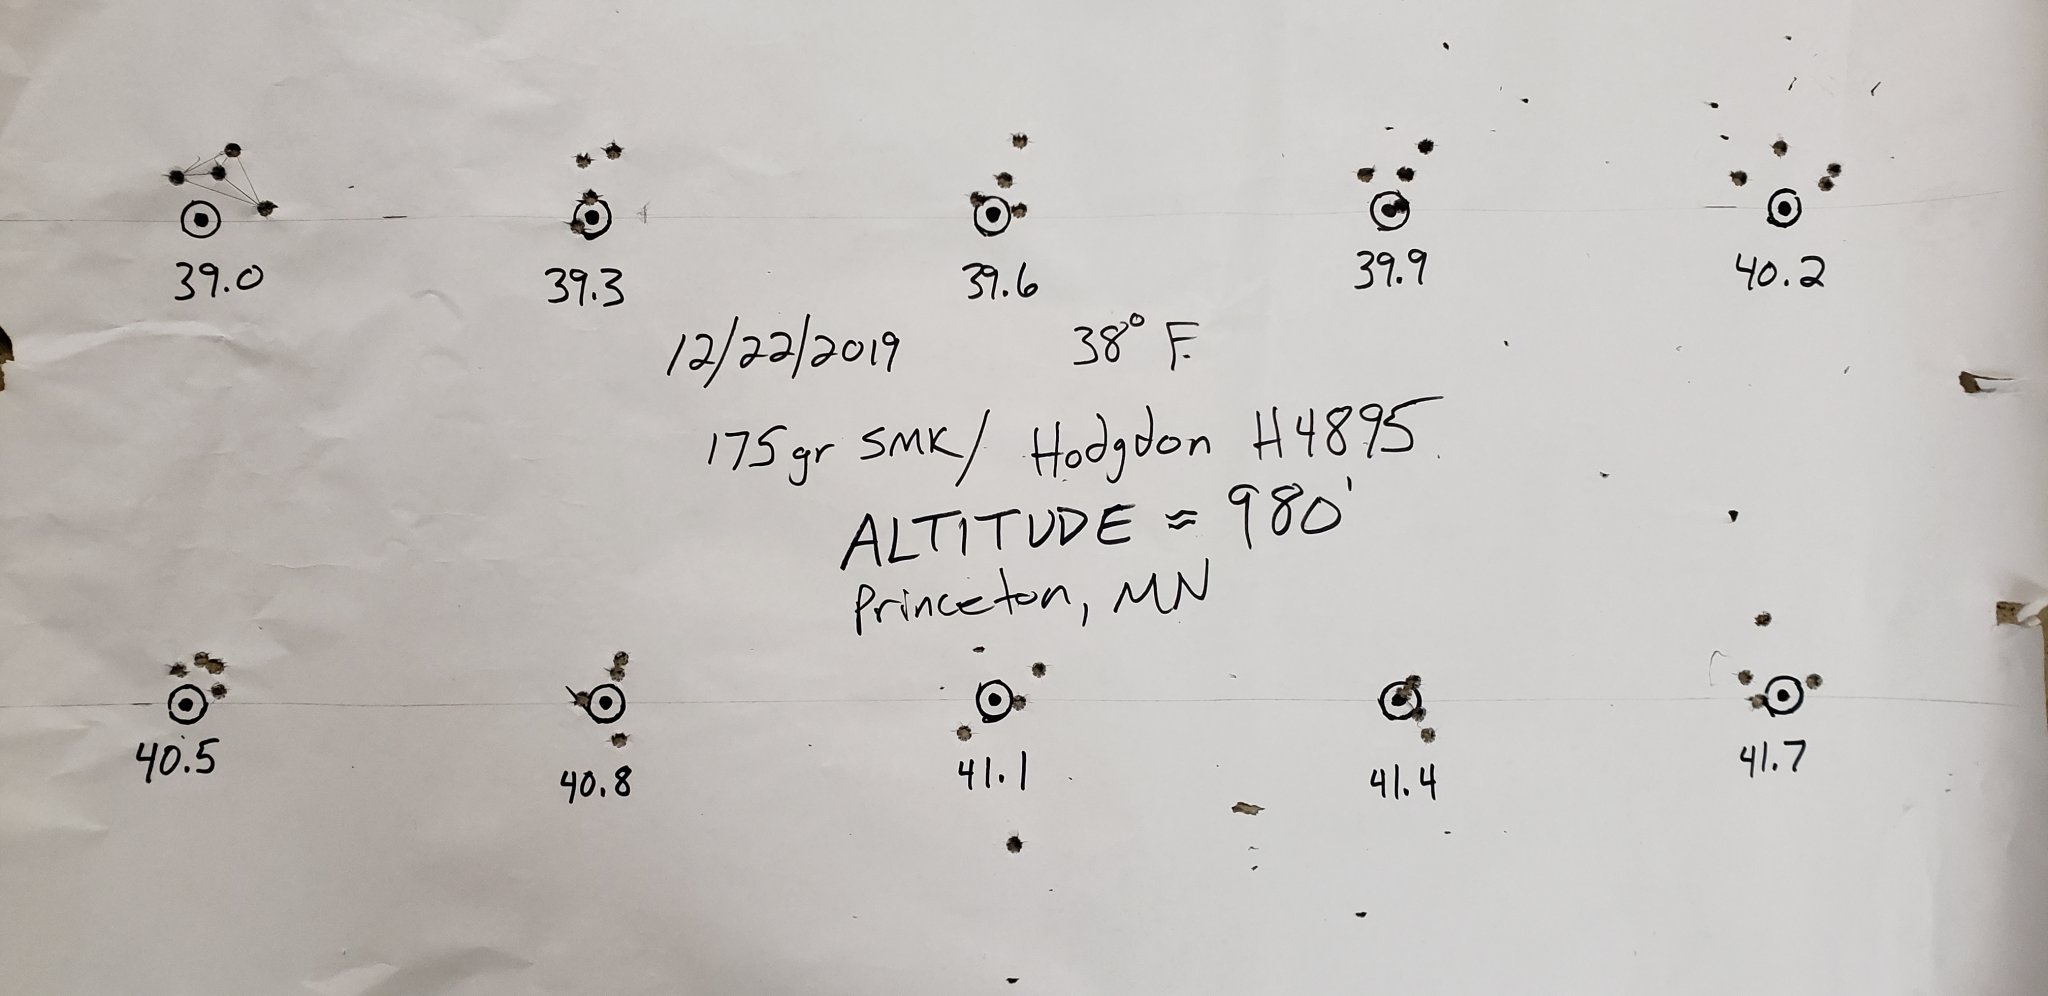 39.0 39.3 39.6 39.9 40.2
12/22/2019 38° F.
175gr SMK/ Hodgdon H4895
ALTITUDE ≈ 980'
Princeton, MN
40.5 40.8 41.1 41.4 41.7